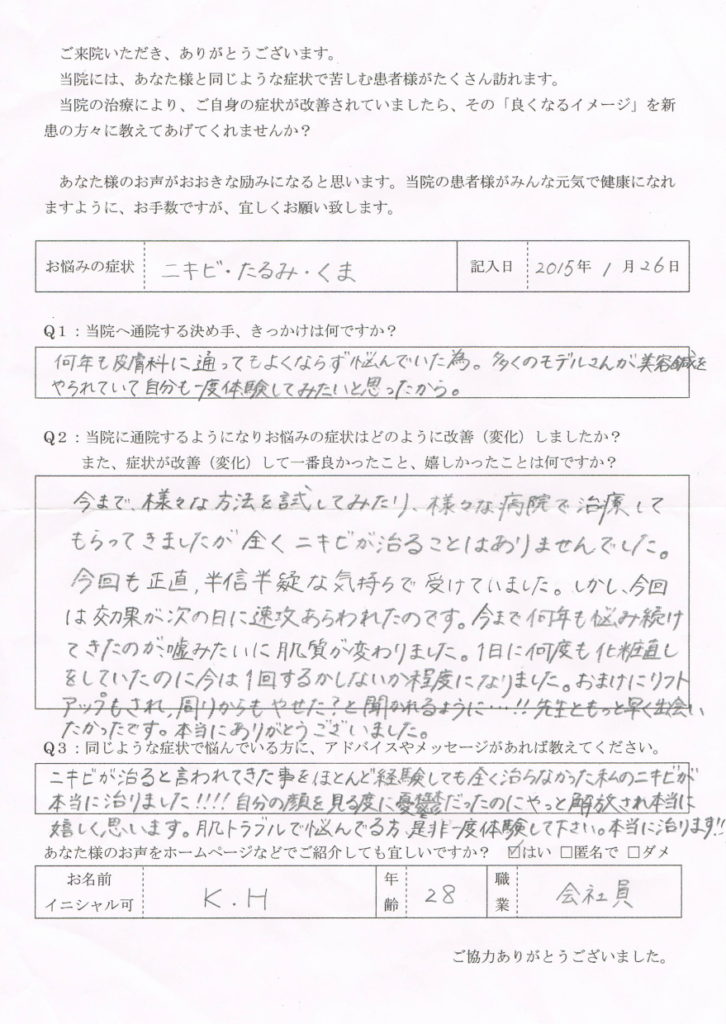 ご来院いただき、ありがとうございます。
当院には、あなた様と同じような症状で苦しむ患者様がたくさん訪れます。
当院の治療により、ご自身の症状が改善されていましたら、その「良くなるイメージ」を新
患の方々に教えてあげてくれませんか？
あなた様のお声がおおきな励みになると思います。当院の患者様がみんな元気で健康になれ
ますように、お手数ですが、宜しくお願い致します。
お悩みの症状 ニキビ・たるみ・くま 記入日 2015年 1月26日
Q1：当院へ通院する決め手、きっかけは何ですか？
何年も皮膚科に通ってもよくならず悩んでいた為。多くのモデルさんが美容鍼を
やられていて自分も一度体験してみたいと思ったから。
Q2：当院に通院するようになりお悩みの症状はどのように改善（変化）しましたか？
また、症状が改善（変化）して一番良かったこと、嬉しかったことは何ですか？
今まで、様々な方法を試してみたり、様々な病院で治療して
もらってきましたが全くニキビが治ることはありませんでした。
今回も正直、半信半疑な気持ちで受けていました。しかし、今回
は効果が次の日に速攻あらわれたのです。今まで何年も悩み続け
てきたのが嘘みたいに肌質が変わりました。1日に何度も化粧直し
をしていたのに今は1回するかしないか程度になりました。おまけにリフト
アップもされ、周りからもやせた？と聞かれるように…!!先生ともっと早く出会い
たかったです。本当にありがとうございました。
Q3：同じような症状で悩んでいる方に、アドバイスやメッセージがあれば教えてください。
ニキビが治ると言われてきた事をほとんど経験しても全く治らなかった私のニキビが
本当に治りました!!!!自分の顔を見る度に憂鬱だったのにやっと解放され本当に
嬉しく思います。肌トラブルで悩んでる方、是非一度体験して下さい。本当に治ります!!
あなた様のお声をホームページなどでご紹介しても宜しいですか？ ☑はい □匿名で □ダメ
お名前 イニシャル可 K.H 年齢 28 職業 会社員
ご協力ありがとうございました。